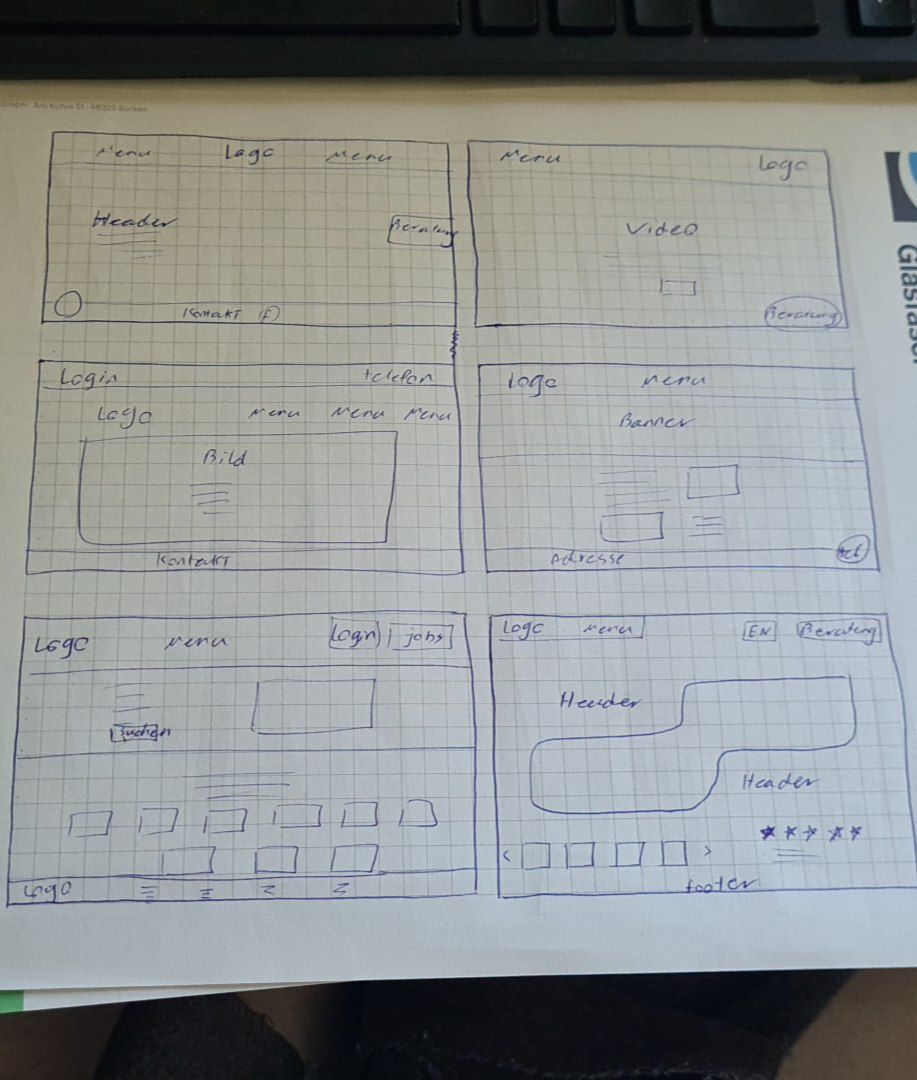 GmbH · Am Kuhm 31 · 46325 Borken
Menu Logo Menu
Header
Beratung
Kontakt f
Menu Logo
Video
Beratung
Login telefon
Logo Menu Menu Menu
Bild
Kontakt
Logo Menu
Banner
Adresse tel
Logo Menu Login jobs
Suchen
Logo
Logo Menu EN Beratung
Header
Header
< >
footer
Glasfaser